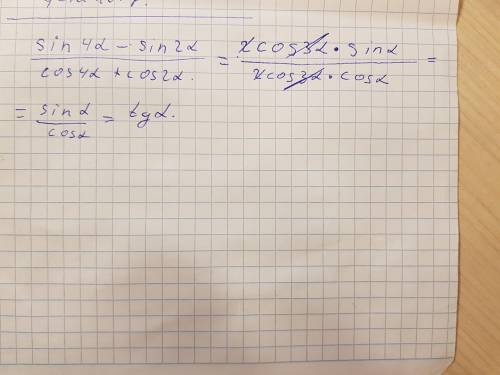 sin 4α - sin 2α / cos 4α + cos 2α. = 2cos3α · sinα / 2cos3α · cosα =
= sinα / cosα = tgα.